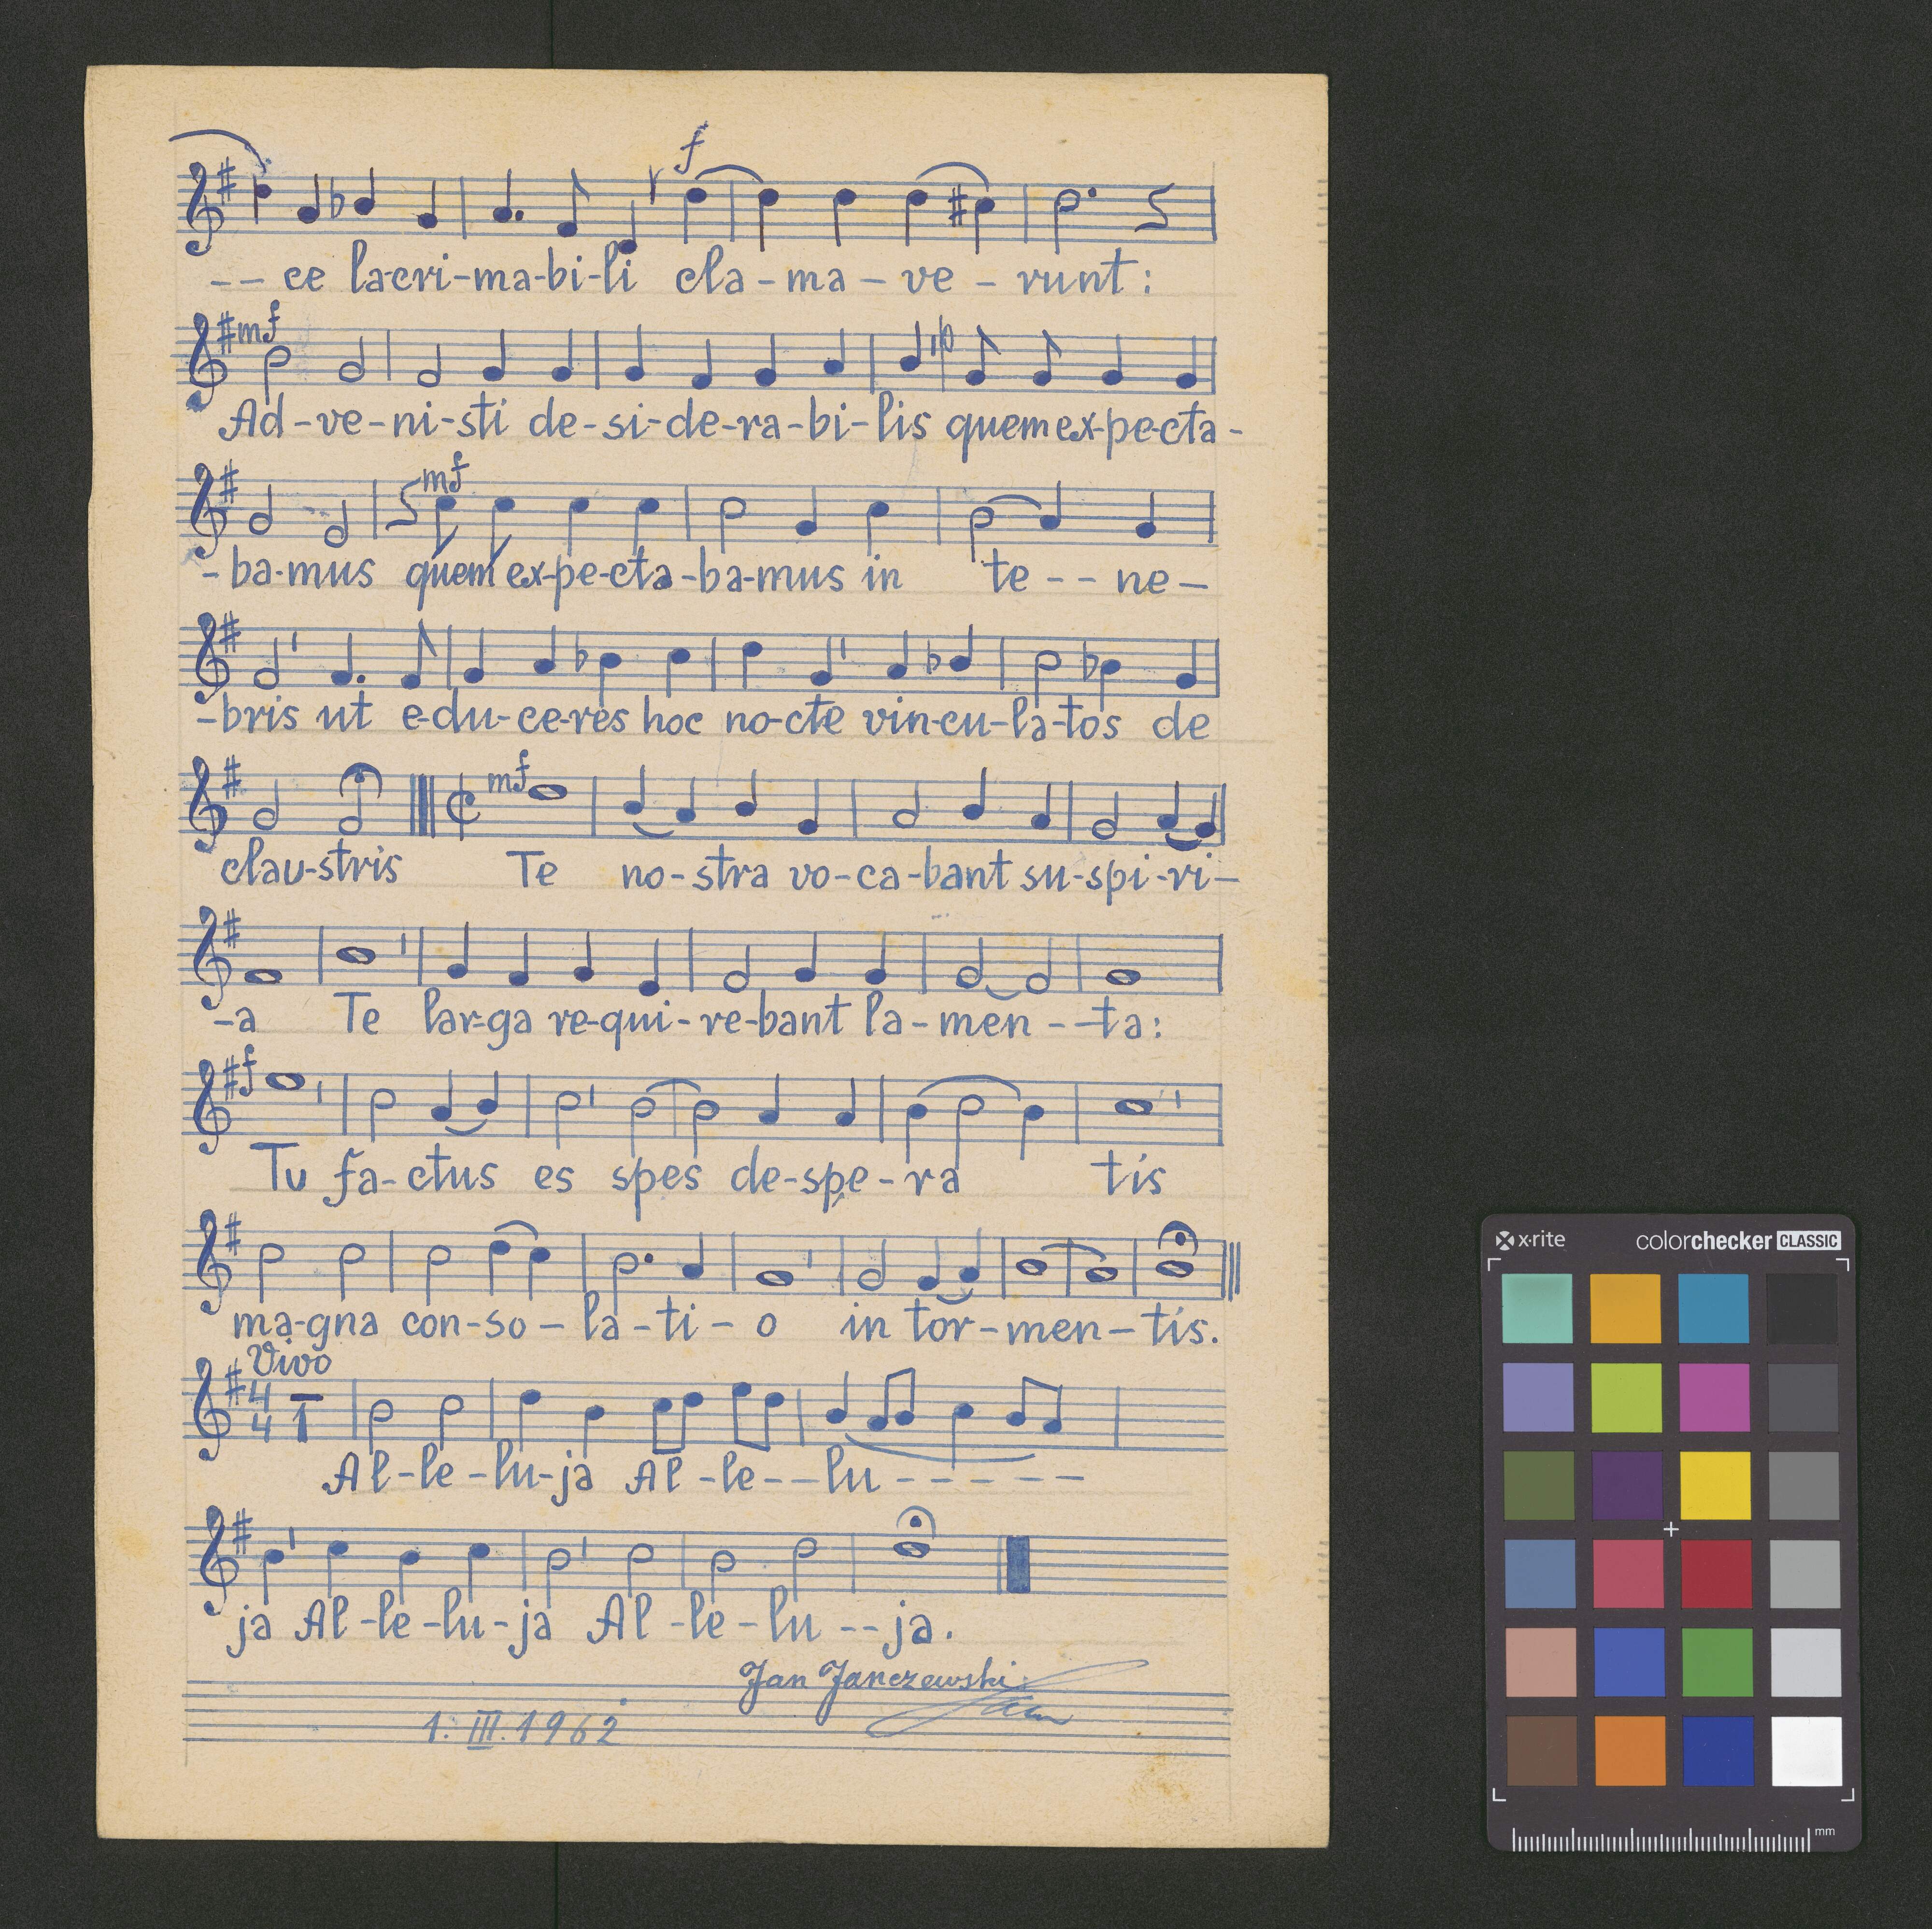 f
-- ce la-cri-ma-bi-li cla-ma-ve-runt:
mf
Ad-ve-ni-sti de-si-de-ra-bi-lis quem ex-pe-cta-
mf
-ba-mus quem ex-pe-cta-ba-mus in te--ne-
-bris ut e-du-ce-res hoc no-cte vin-cu-la-tos de
mf
clau-stris Te no-stra vo-ca-bant su-spi-ri-
-a Te lar-ga re-qui-re-bant la-men--ta:
f
Tu fa-ctus es spes de-spe-ra tis
ma-gna con-so-la-ti-o in tor-men-tis.
Vivo
4 4 1
Al-le-lu-ja Al-le--lu-----
ja Al-le-lu-ja Al-le-lu--ja.
Jan Janczewski
1. III. 1962
x-rite colorchecker CLASSIC
mm